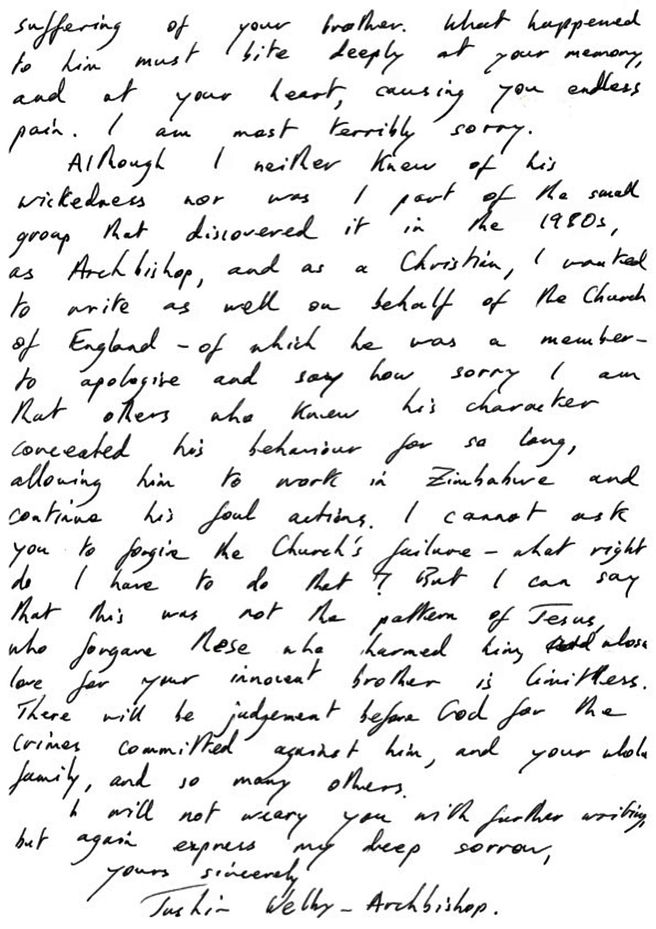 suffering of your brother. What happened
to him must bite deeply at your memory,
and at your heart, causing you endless
pain. I am most terribly sorry.
Although I neither knew of his
wickedness nor was I part of the small
group that discovered it in the 1980s,
as Archbishop, and as a Christian, I wanted
to write as well on behalf of the Church
of England - of which he was a member -
to apologise and say how sorry I am
that others who knew his character
concealed his behaviour for so long,
allowing him to work in Zimbabwe and
continue his foul actions. I cannot ask
you to forgive the Church's failure - what right
do I have to do that? But I can say
that this was not the pattern of Jesus,
who forgave those who harmed him, whose
love for your innocent brother is limitless.
There will be judgement before God for the
crimes committed against him, and your whole
family, and so many others.
I will not weary you with further writing,
but again express my deep sorrow,
yours sincerely
Justin Welby - Archbishop.